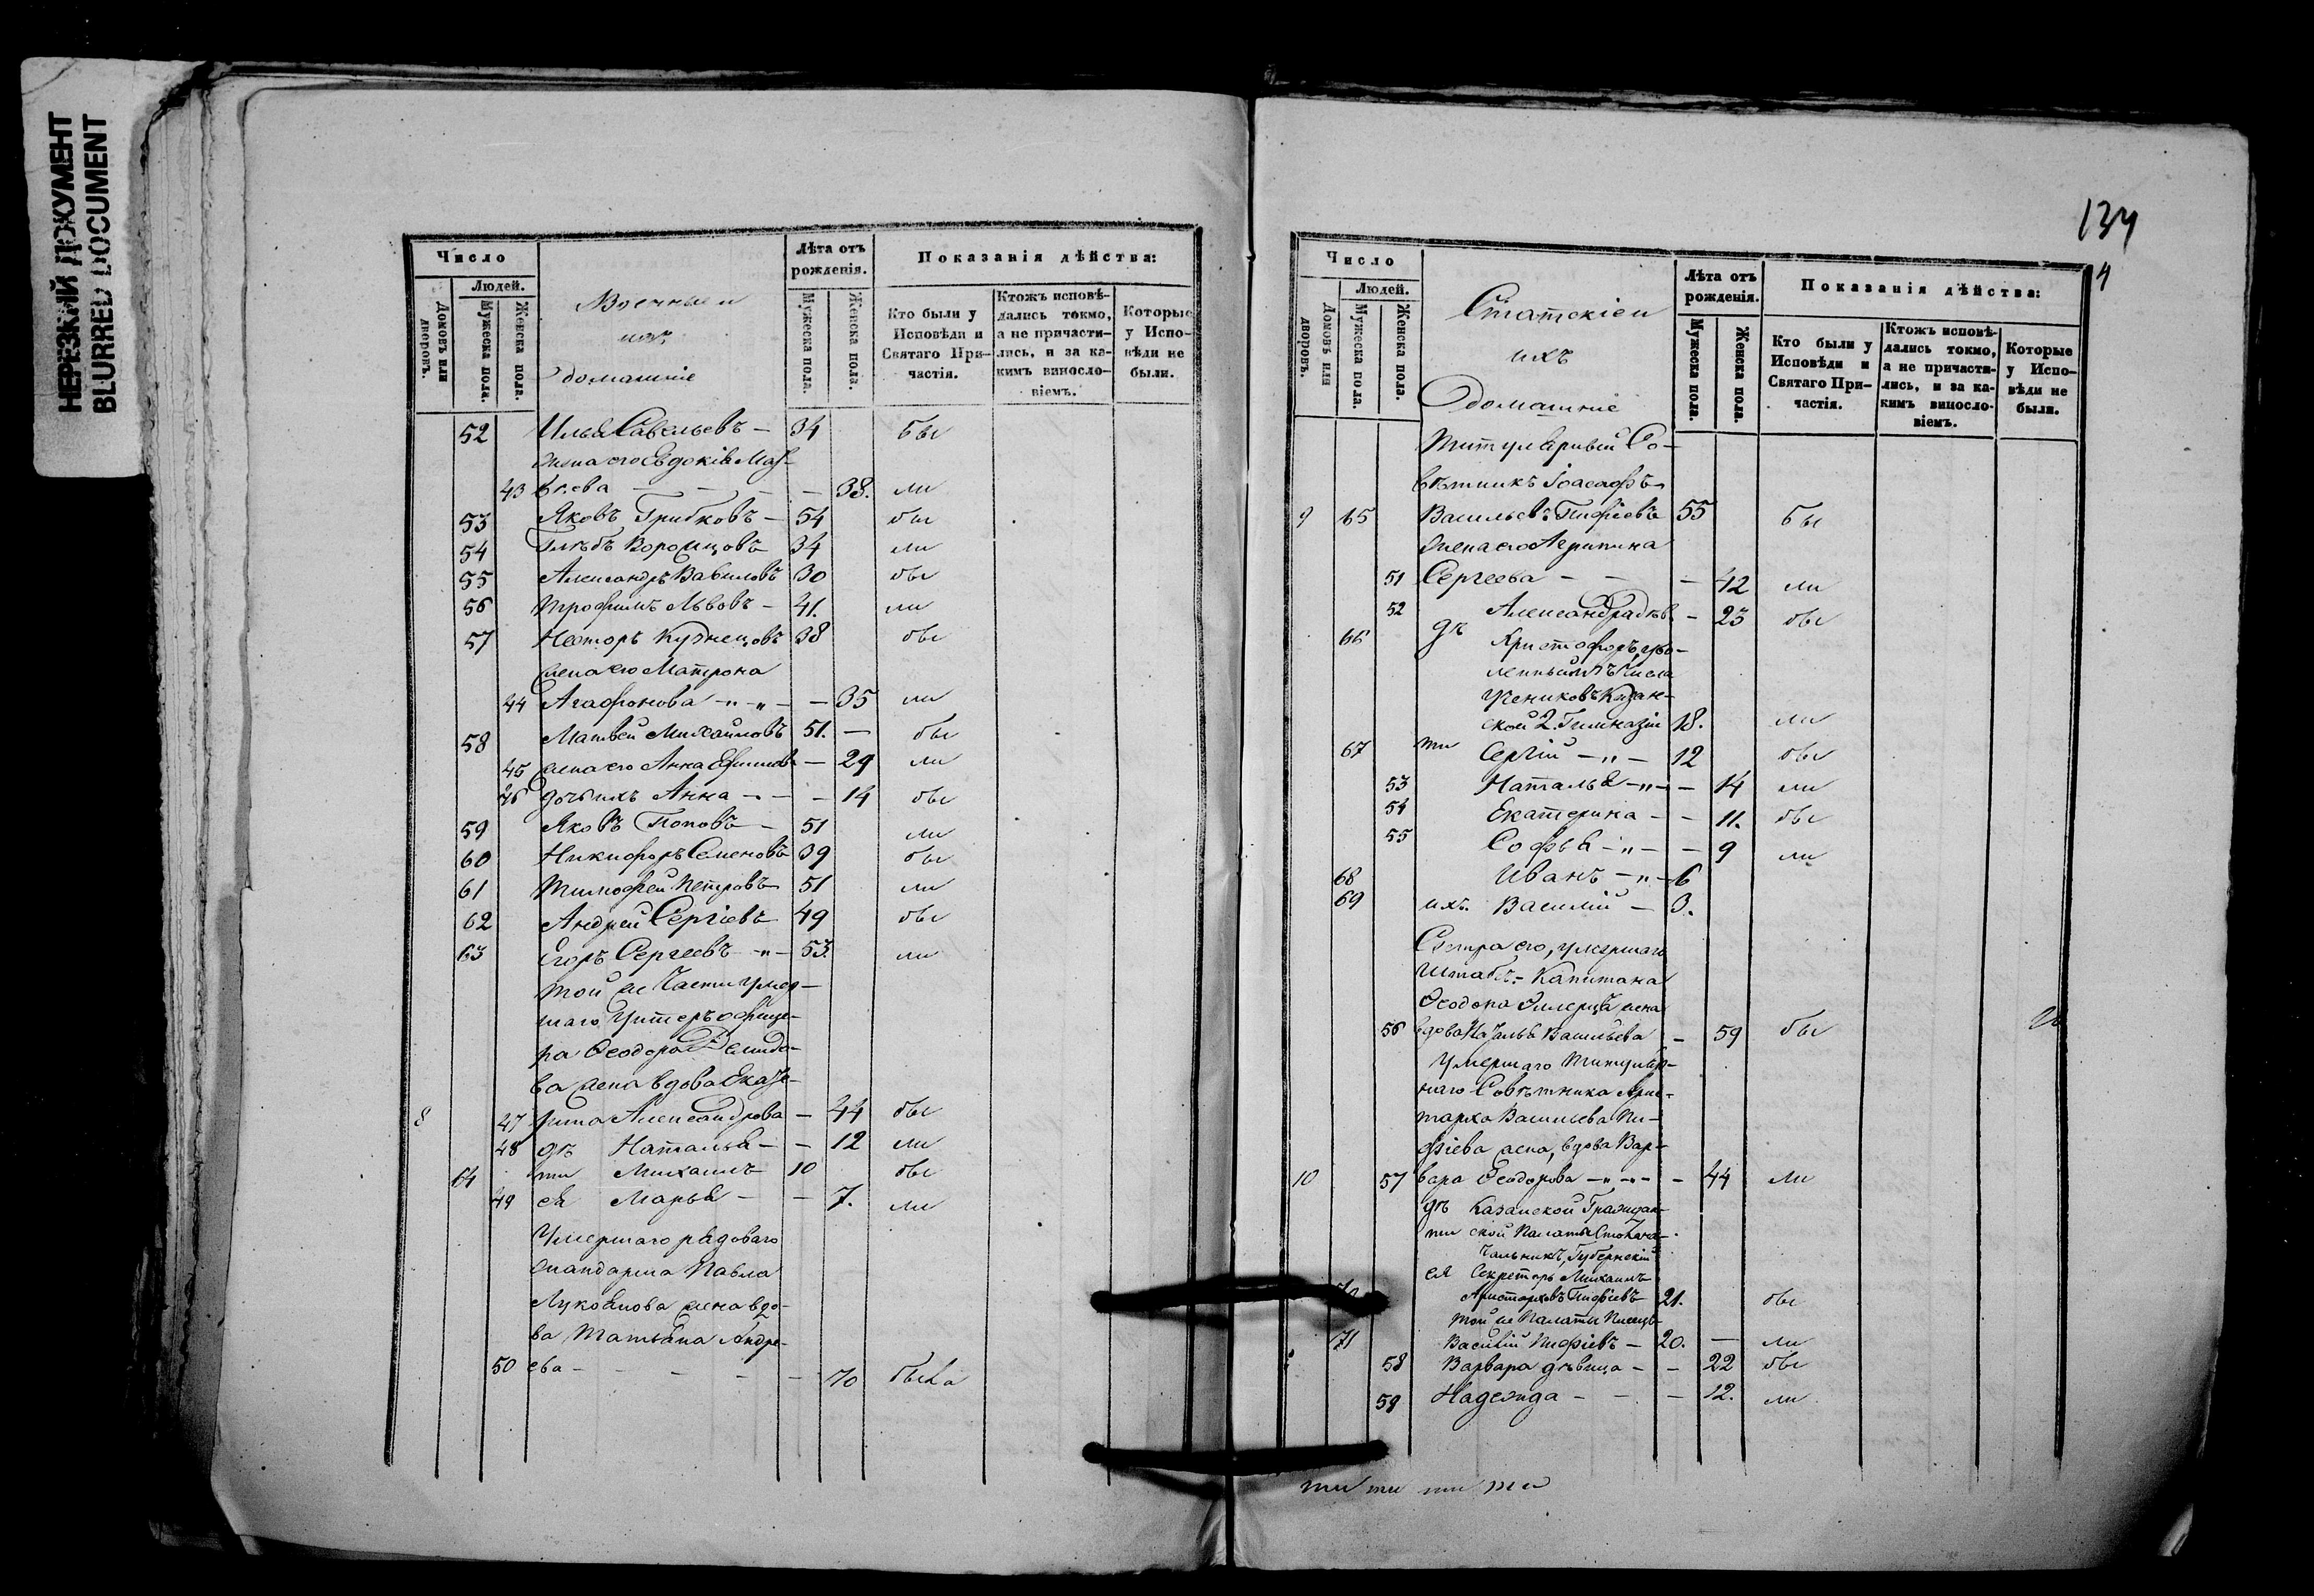 НЕРЕЗКИЙ ДОКУМЕНТ
BLURRED DOCUMENT
Число
Людей.
Домовъ или дворовъ.
Мужеска пола.
Женска пола.
Военные и
ихъ
домашніе
Лѣта отъ рожденія.
Мужеска пола.
Женска пола.
Показанія дѣйства:
Кто были у Исповѣди и Святаго При-частія.
Ктожъ исповѣ-дались токмо, а не причасти-лись, и за ка-кимъ винословіемъ.
Которые у Испо-вѣди не были.
52 Илья Савельевъ — 34 бы
жена его Евдокія Мат-
43 вѣева — — — — 38. ли
53 Яковъ Грибковъ — 54 бы
54 Глѣбъ 34 ли
55 Александръ Вавиловъ 30 бы
56 Трофимъ Львовъ — 41. ли
57 Несторъ Кузнецовъ 38 бы
жена его Матрона
44 Агафонова — " — " — — 35 ли
58 Матвей Михайловъ 51. — бы
45 жена его Анна Ефимова — 29 ли
46 дочь ихъ Анна — — — 14 бы
59 Яковъ Поповъ — 51 ли
60 Никифоръ Семеновъ 39 бы
61 Тимофей Петровъ 51 ли
62 Андрей Сергіевъ 49 бы
63 Егоръ Сергеевъ — " — 53. ли
той же Части умер-
шаго Унтеръ офице-
ра Ѳеодора Демидо-
ва жена вдова Екате-
8 47 рина Александрова — 44 бы
48 дѣ Наталья — — 12 ли
64 ти Михаилъ 10 бы
49 ея Марья — — 7. ли
Умершаго рядоваго
жандарма Павла
Лукоянова жена вдо-
ва Татьяна Андре-
50 ева — — — — — 70 была
134
4
Число
Людей.
Домовъ или дворовъ.
Мужеска пола.
Женска пола.
Статскіе и
ихъ
домашніе
Лѣта отъ рожденія.
Мужеска пола.
Женска пола.
Показанія дѣйства:
Кто были у Исповѣди и Святаго При-частія.
Ктожъ исповѣ-дались токмо, а не причасти-лись, и за ка-кимъ винословіемъ.
Которые у Испо-вѣди не были.
Титулярный Со-
вѣтникъ Іоасафъ
9 65 Васильевъ Пифіевъ 55 бы
жена его
51 Сергеева — — — 42 ли
52 Александра дѣв. — 23 бы
66 дѣ Христофоръ, уво-
ленный изъ числа
учениковъ Казан-
ской 2. Гимназіи 18. ли
67 ти Сергій — " — 12 бы
53 Наталья — " — — 14 ли
54 Екатерина — — 11. бы
55 Софья — " — — 9 ли
68 Иванъ — " — 6
69 ихъ Василій — 3.
Сестра его, умершаго
Штабсъ-Капитана
Ѳеодора жена
56 вдова Наталья Васильева — 59 бы
Умершаго Титуляр-
наго Совѣтника Арис-
тарха Васильева Пи-
фіева жена, вдова Вар-
10 57 вара Ѳеодорова — " — " — — 44 ли
дѣ Казанской Граждан-
ти ской Палаты Столона-
чальникъ, Губернскій
ея Секретарь Михаилъ
70 Аристарховъ Пифіевъ 21. бы
той же Палаты Писецъ
71 Василій Пифіевъ — 20. — ли
58 Варвара дѣвица — — 22 бы
59 Надежда — — — 12. ли
ти ти ти